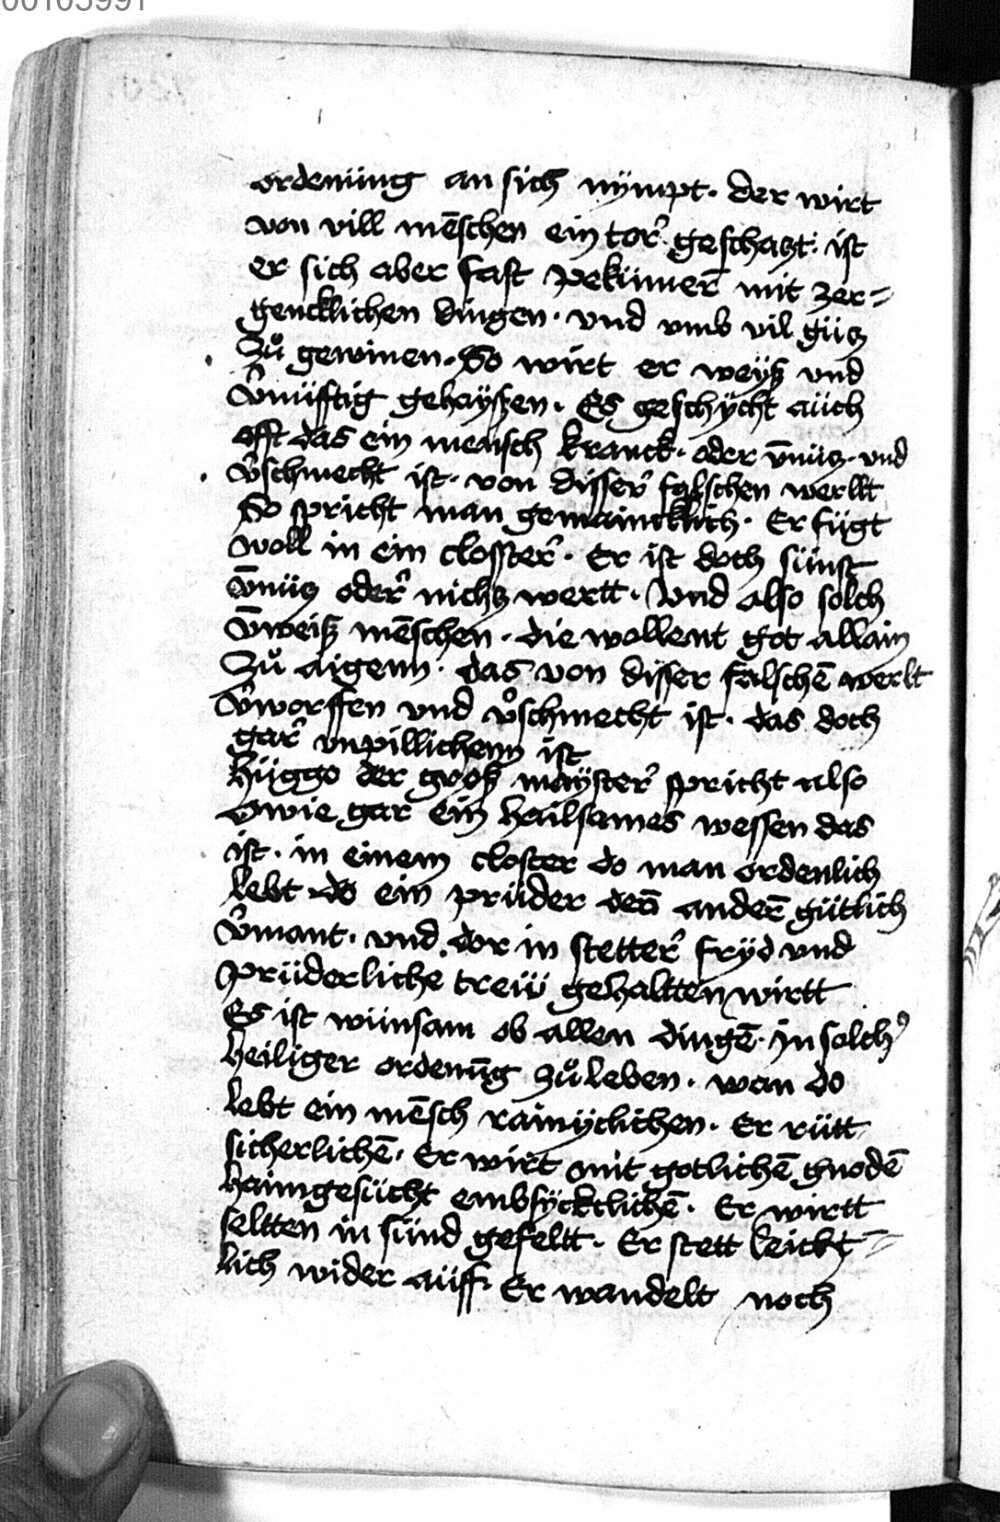 00103991
ordenüng an sich nÿmpt. der wirt
von vill mēschen ein tor̄ geschaczt. ist
er sich aber fast pekümer̄ mit zer=
gencklichen dingen. vnd vmb vil gücz
Zů gewinen. So wirt er weÿß vnd
v̄nüfftig gehayssen. Es geschÿcht aüch
offt das ein mensch kranck. oder v̄nücz. vnd
v̄schmecht ist. von disser̄ falschen werllt
So spricht man gemaincklich. Er fügt
woll in ein closster̄. Er ist doch sünst
v̄nücz oder̄ nichcz wertt. Vnd also solch
v̄weiß mēschen. die wollent got allain
Zů aigenn. das von disser falschē werlt
v̄worffen vnd v̊schmecht ist. das doch
gar̄ vnpillichenn ist
Hüggo der groß maÿster̄ spricht also
O wie gar ein hailsames wessen das
ist. in einem closter do man ordenlich
lebt do ein prüder den̄ ander̄ gütlich
v̄mant. vnd dor in stetter̄ fryd vnd
prüderliche treẅ gehaltten wirtt
Es ist wünsam ob allen dingē. jn solch⁹
heiliger ordenūg zů leben. wan do
lebt ein mēsch rainÿclichen. Er rütt
sicherlichē. Er wirt mit gotlichē gnodē
haimgesücht embsÿcktlichē. Er wirtt
seltten in sünd gefeltt. Er stett leickt=
lich wider aüff. Er wandelt noch